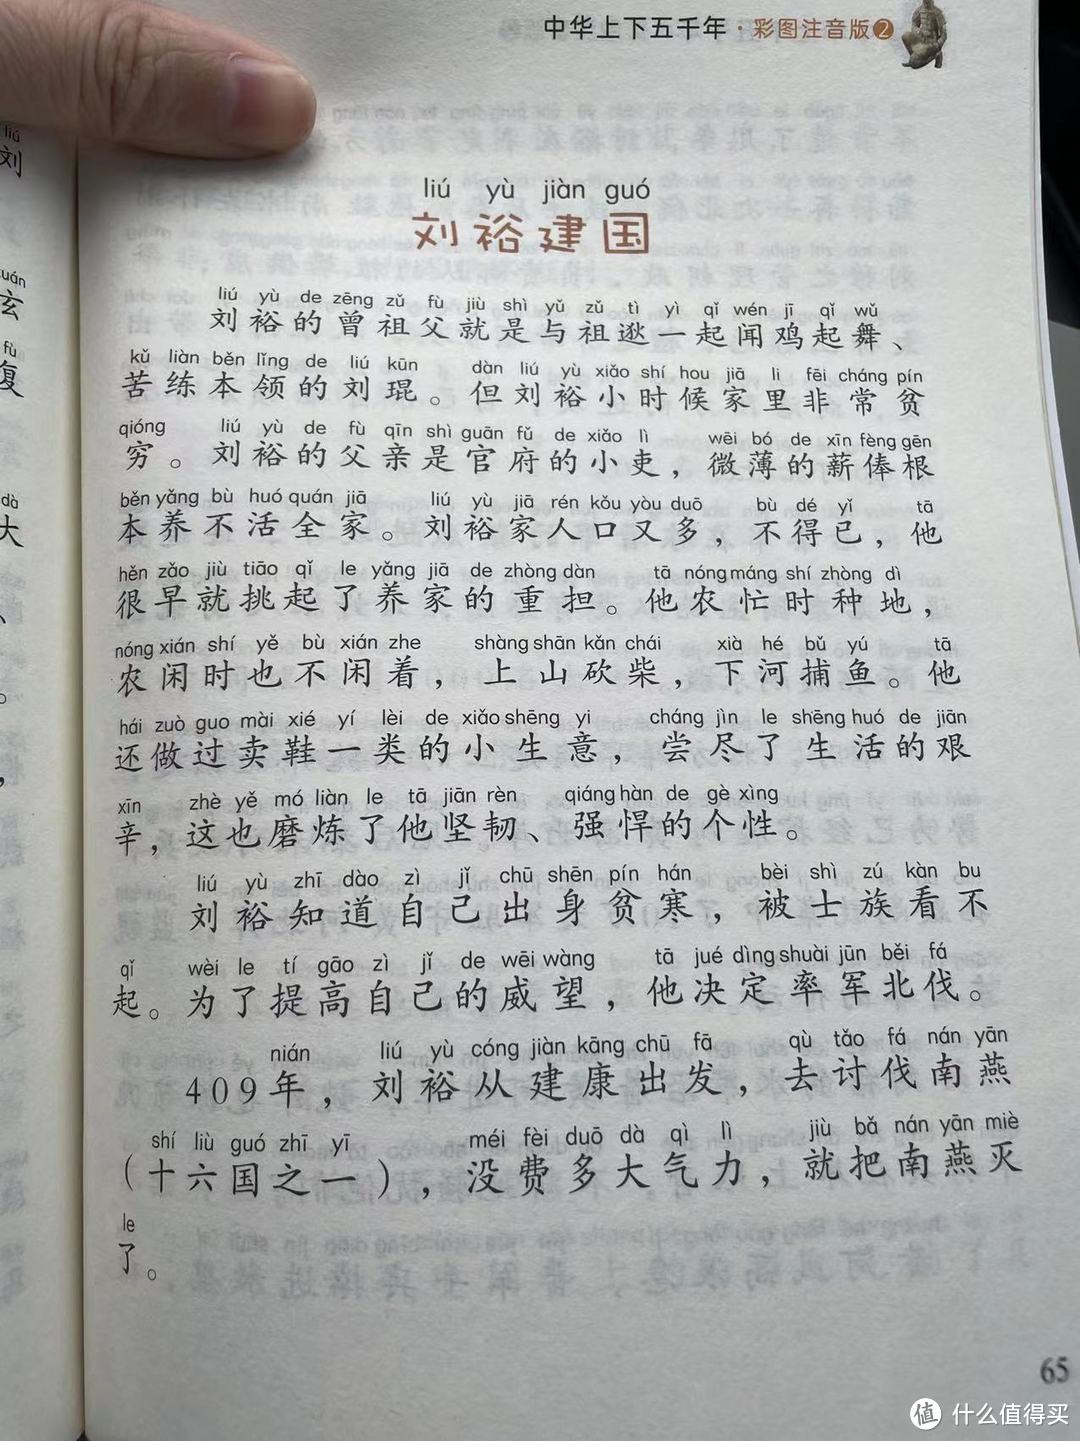 中华上下五千年·彩图注音版❷
liú yù jiàn guó
刘裕建国
liú yù de zēng zǔ fù jiù shì yǔ zǔ tì yì qǐ wén jī qǐ wǔ
刘裕的曾祖父就是与祖逖一起闻鸡起舞、
kǔ liàn běn lǐng de liú kūn dàn liú yù xiǎo shí hou jiā li fēi cháng pín
苦练本领的刘琨。但刘裕小时候家里非常贫
qióng liú yù de fù qīn shì guān fǔ de xiǎo lì wēi bó de xīn fèng gēn
穷。刘裕的父亲是官府的小吏，微薄的薪俸根
běn yǎng bù huó quán jiā liú yù jiā rén kǒu yòu duō bù dé yǐ tā
本养不活全家。刘裕家人口又多，不得已，他
hěn zǎo jiù tiāo qǐ le yǎng jiā de zhòng dàn tā nóng máng shí zhòng dì
很早就挑起了养家的重担。他农忙时种地，
nóng xián shí yě bù xián zhe shàng shān kǎn chái xià hé bǔ yú tā
农闲时也不闲着，上山砍柴，下河捕鱼。他
hái zuò guo mài xié yí lèi de xiǎo shēng yi cháng jìn le shēng huó de jiān
还做过卖鞋一类的小生意，尝尽了生活的艰
xīn zhè yě mó liàn le tā jiān rèn qiáng hàn de gè xìng
辛，这也磨炼了他坚韧、强悍的个性。
liú yù zhī dào zì jǐ chū shēn pín hán bèi shì zú kàn bu
刘裕知道自己出身贫寒，被士族看不
qǐ wèi le tí gāo zì jǐ de wēi wàng tā jué dìng shuài jūn běi fá
起。为了提高自己的威望，他决定率军北伐。
nián liú yù cóng jiàn kāng chū fā qù tǎo fá nán yān
409年，刘裕从建康出发，去讨伐南燕
shí liù guó zhī yī méi fèi duō dà qì lì jiù bǎ nán yān miè
（十六国之一），没费多大气力，就把南燕灭
le
了。
65
值 什么值得买